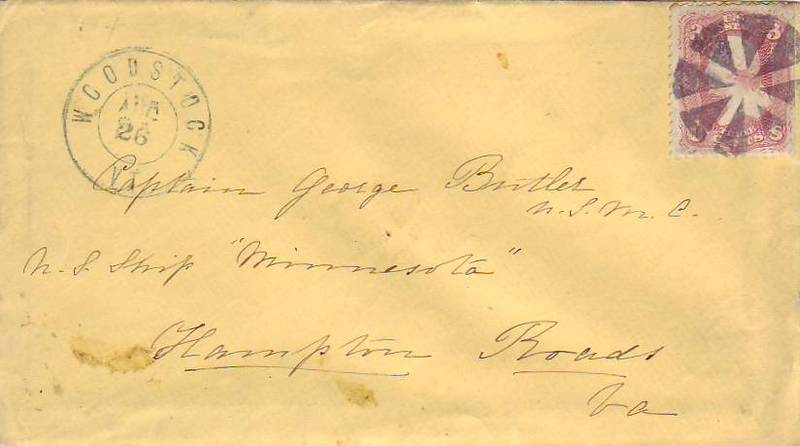 WOODSTOCK
APR
26
VT
3 3
U S
Captain George Butler
U. S. M. C.
U. S. Ship "Minnesota"
Hampton Roads
Va